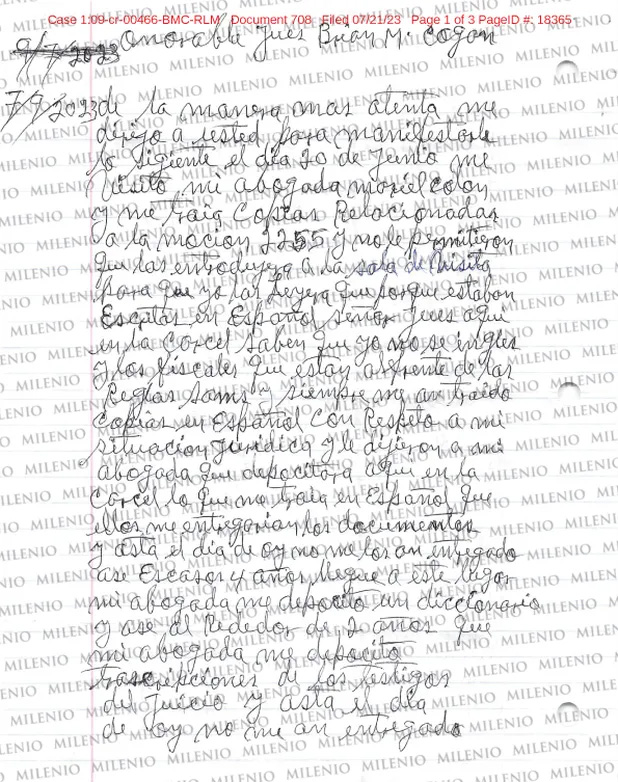 Case 1:09-cr-00466-BMC-RLM Document 708 Filed 07/21/23 Page 1 of 3 PageID #: 18365
Onorable Jues Brian M. Cogan
7/7/2023 de la manera mas atenta me
dirijo a usted para manifestarle
lo sigiente el día 20 de Junio me
visito mi abogada mariel colon
y me traia Copias Relacionadas
a la mocion 2255 y no le permitieron
que las entrodujera a la sala de visita
para que yo las leyera que porque estaban
Escritas en Español señor jues aqui
en la Carcel saben que yo no se ingles
y los fiscales que estan al frente de las
Reglas sams y siempre me an traido
copias en Español con Respeto a mi
situacion juridica y le dijeron a mi
abogada que depocitara aqui en la
Carcel lo que me traia en Español que
ellos me entregarian los documentos
y asta el dia de oy no me los an entregado
ase Escasos 4 años llegue a este lugar
mi abogada me depocito un diccionario
y ase al Rededor de 2 años que
mi abogada me depocito
trascripciones de los testigos
del juicio y asta el dia
de oy no me an entregado
MILENIO